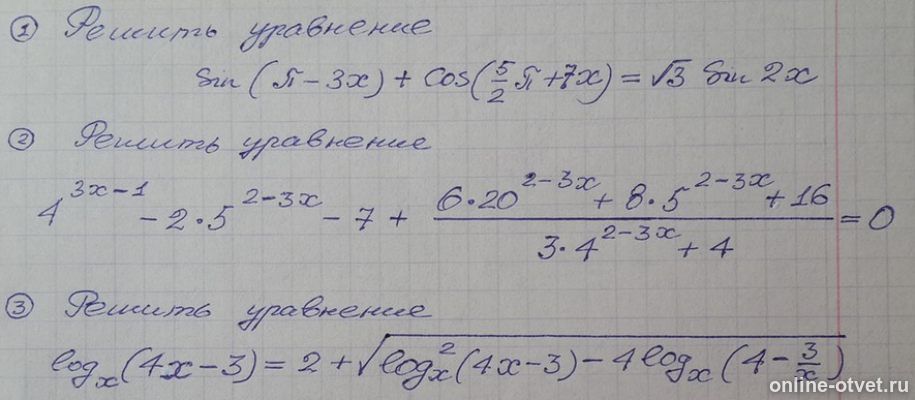 ① Решить уравнение
Sin(π - 3x) + Cos(5/2 π + 7x) = √3 Sin 2x
② Решить уравнение
4^(3x-1) - 2·5^(2-3x) - 7 + (6·20^(2-3x) + 8·5^(2-3x) + 16)/(3·4^(2-3x) + 4) = 0
③ Решить уравнение
log_x(4x-3) = 2 + √(log_x^2(4x-3) - 4log_x(4 - 3/x))
online-otvet.ru